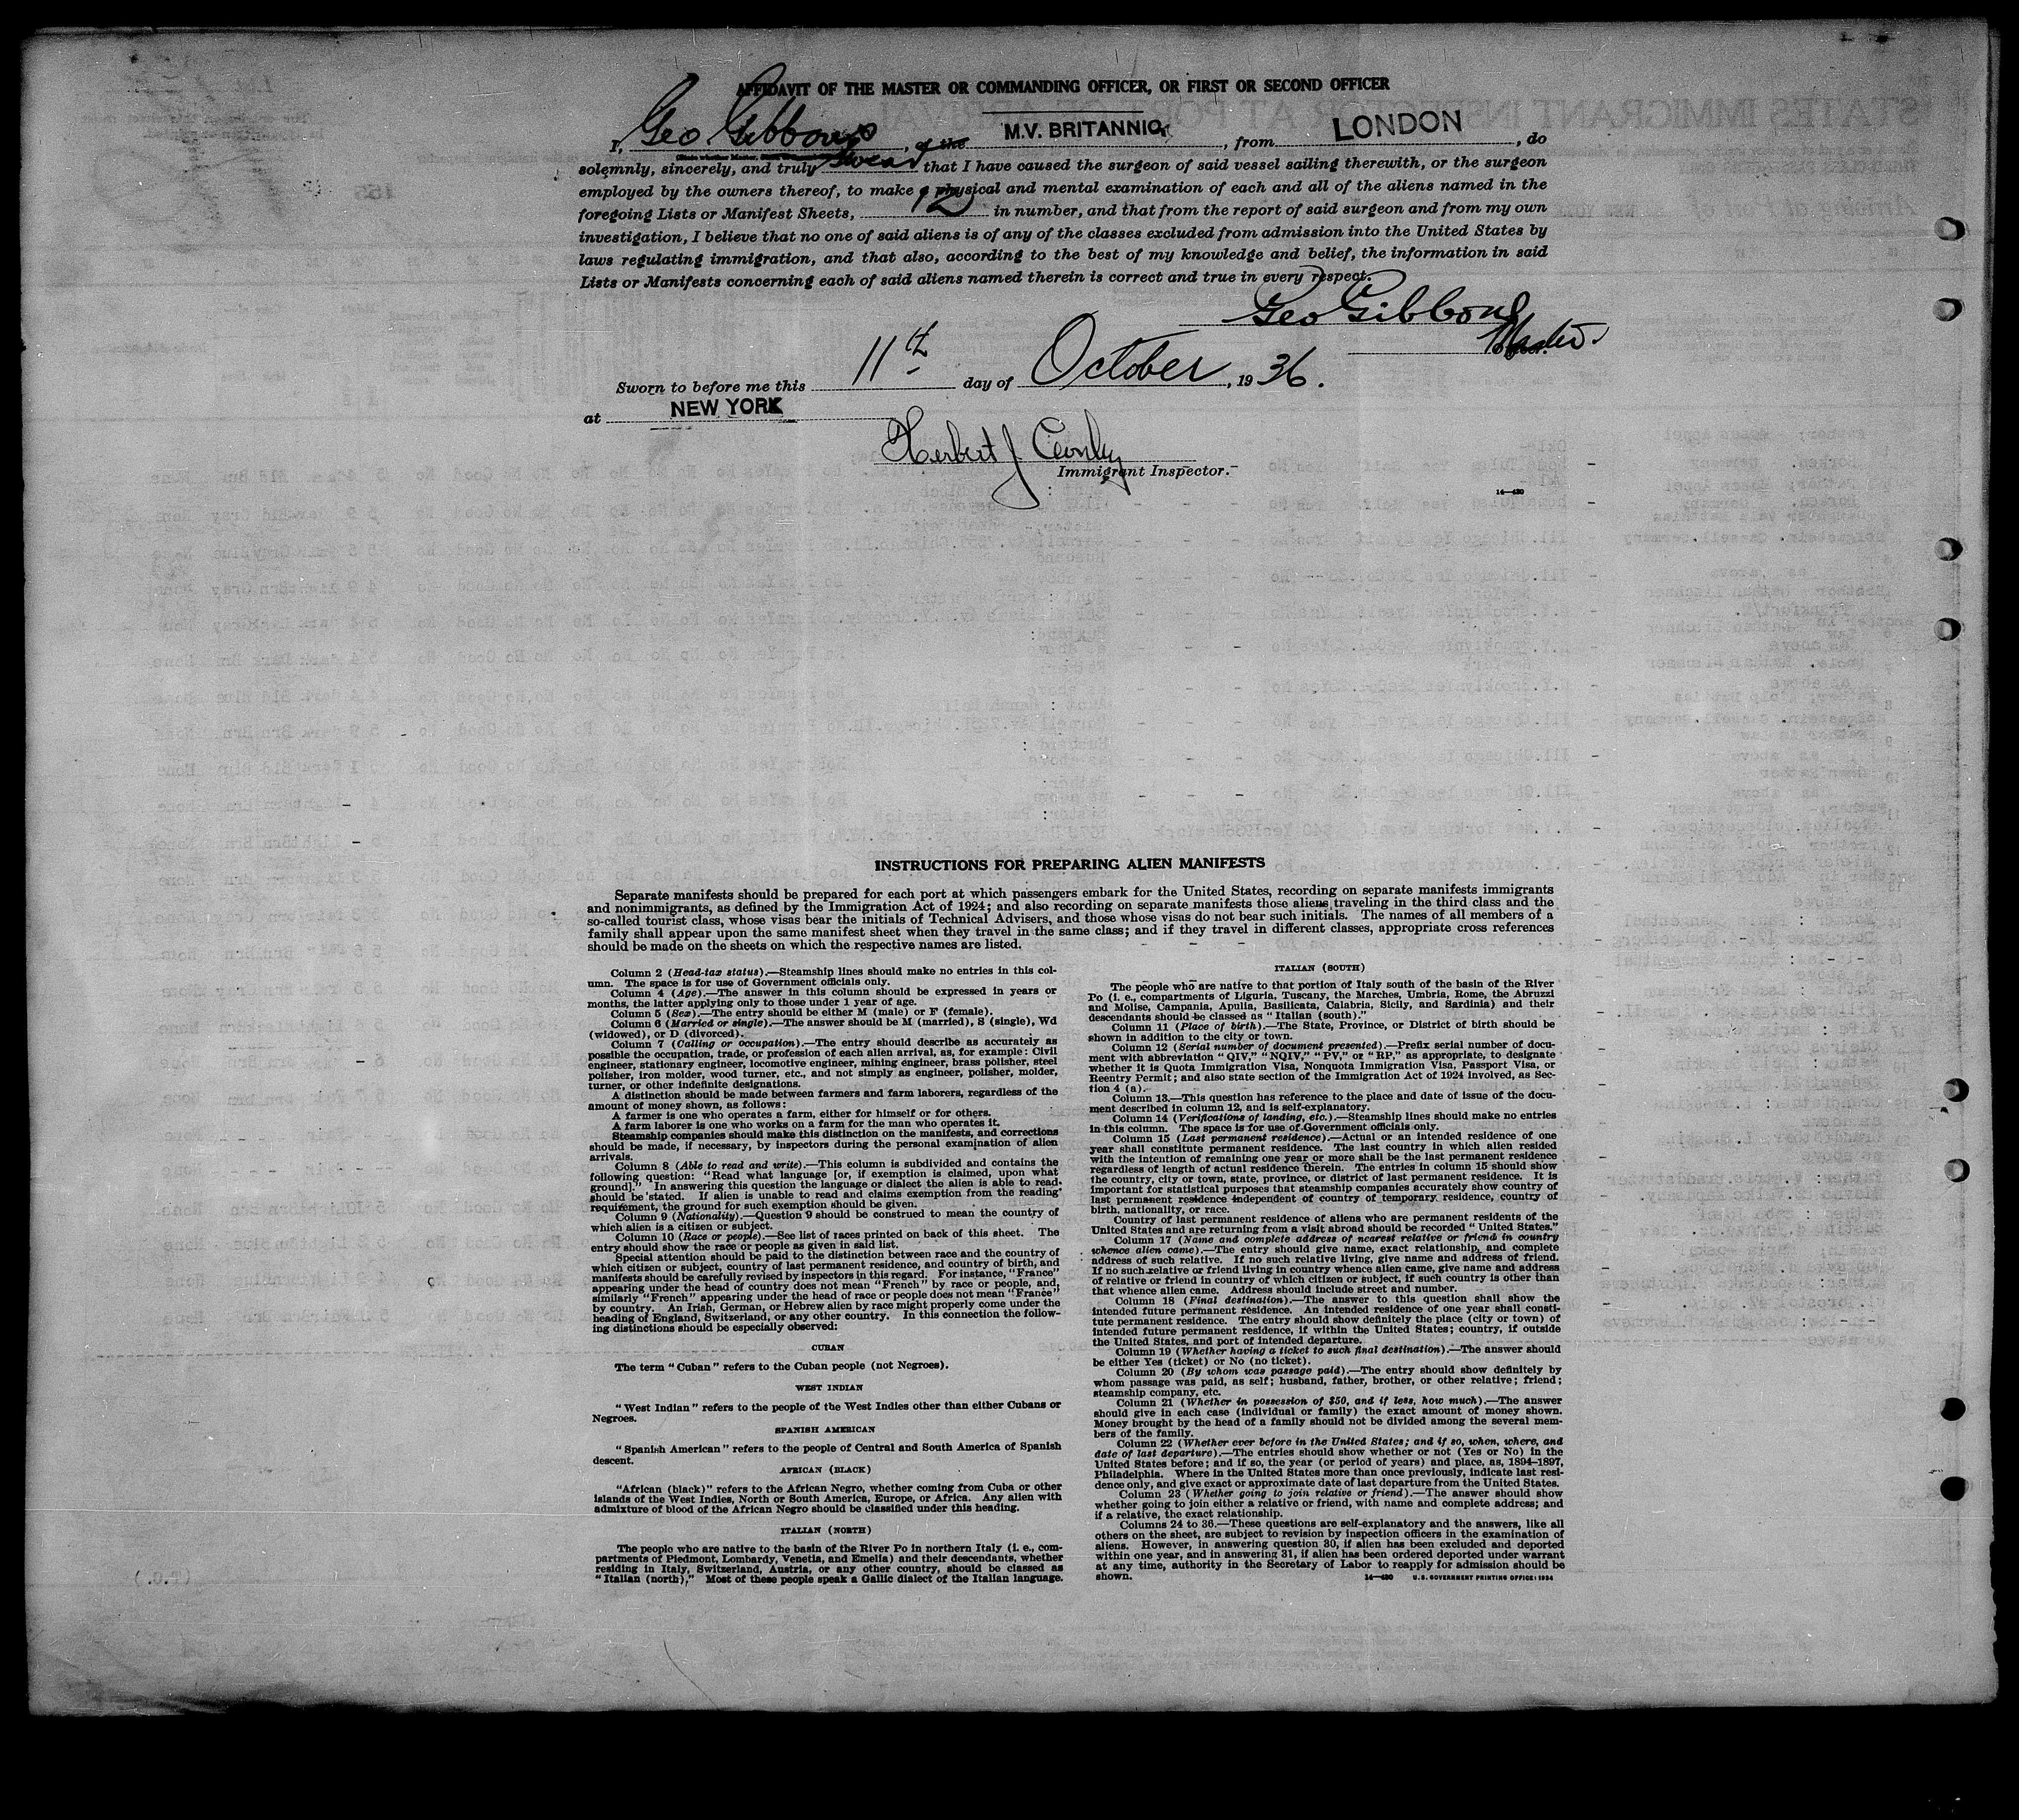 AFFIDAVIT OF THE MASTER OR COMMANDING OFFICER, OR FIRST OR SECOND OFFICER
I, Geo Gibbons, of the M.V. BRITANNIC, from LONDON, do
solemnly, sincerely, and truly swear that I have caused the surgeon of said vessel sailing therewith, or the surgeon
employed by the owners thereof, to make a physical and mental examination of each and all of the aliens named in the
foregoing Lists or Manifest Sheets, 12 in number, and that from the report of said surgeon and from my own
investigation, I believe that no one of said aliens is of any of the classes excluded from admission into the United States by
laws regulating immigration, and that also, according to the best of my knowledge and belief, the information in said
Lists or Manifests concerning each of said aliens named therein is correct and true in every respect.
Geo Gibbons
Master
Sworn to before me this 11th day of October, 1936.
at NEW YORK
Herbert J
Immigrant Inspector.
14—430
INSTRUCTIONS FOR PREPARING ALIEN MANIFESTS
Separate manifests should be prepared for each port at which passengers embark for the United States, recording on separate manifests immigrants
and nonimmigrants, as defined by the Immigration Act of 1924; and also recording on separate manifests those aliens traveling in the third class and the
so-called tourist class, whose visas bear the initials of Technical Advisers, and those whose visas do not bear such initials. The names of all members of a
family shall appear upon the same manifest sheet when they travel in the same class; and if they travel in different classes, appropriate cross references
should be made on the sheets on which the respective names are listed.
Column 2 (Head-tax status).—Steamship lines should make no entries in this col-
umn. The space is for use of Government officials only.
Column 4 (Age).—The answer in this column should be expressed in years or
months, the latter applying only to those under 1 year of age.
Column 5 (Sex).—The entry should be either M (male) or F (female).
Column 6 (Married or single).—The answer should be M (married), S (single), Wd
(widowed), or D (divorced).
Column 7 (Calling or occupation).—The entry should describe as accurately as
possible the occupation, trade, or profession of each alien arrival, as, for example: Civil
engineer, stationary engineer, locomotive engineer, mining engineer, brass polisher, steel
polisher, iron molder, wood turner, etc., and not simply as engineer, polisher, molder,
turner, or other indefinite designations.
A distinction should be made between farmers and farm laborers, regardless of the
amount of money shown, as follows:
A farmer is one who operates a farm, either for himself or for others.
A farm laborer is one who works on a farm for the man who operates it.
Steamship companies should make this distinction on the manifests, and corrections
should be made, if necessary, by inspectors during the personal examination of alien
arrivals.
Column 8 (Able to read and write).—This column is subdivided and contains the
following question: "Read what language [or, if exemption is claimed, upon what
ground]." In answering this question the language or dialect the alien is able to read
should be stated. If alien is unable to read and claims exemption from the reading
requirement, the ground for such exemption should be given.
Column 9 (Nationality).—Question 9 should be construed to mean the country of
which alien is a citizen or subject.
Column 10 (Race or people).—See list of races printed on back of this sheet. The
entry should show the race or people as given in said list.
Special attention should be paid to the distinction between race and the country of
which citizen or subject, country of last permanent residence, and country of birth, and
manifests should be carefully revised by inspectors in this regard. For instance, "France"
appearing under the head of country does not mean "French" by race or people, and,
similarly "French" appearing under the head of race or people does not mean "France"
by country. An Irish, German, or Hebrew alien by race might properly come under the
heading of England, Switzerland, or any other country. In this connection the follow-
ing distinctions should be especially observed:
CUBAN
The term "Cuban" refers to the Cuban people (not Negroes).
WEST INDIAN
"West Indian" refers to the people of the West Indies other than either Cubans or
Negroes.
SPANISH AMERICAN
"Spanish American" refers to the people of Central and South America of Spanish
descent.
AFRICAN (BLACK)
"African (black)" refers to the African Negro, whether coming from Cuba or other
islands of the West Indies, North or South America, Europe, or Africa. Any alien with
admixture of blood of the African Negro should be classified under this heading.
ITALIAN (NORTH)
The people who are native to the basin of the River Po in northern Italy (i. e., com-
partments of Piedmont, Lombardy, Venetia, and Emelia) and their descendants, whether
residing in Italy, Switzerland, Austria, or any other country, should be classed as
"Italian (north)." Most of these people speak a Gallic dialect of the Italian language.
ITALIAN (SOUTH)
The people who are native to that portion of Italy south of the basin of the River
Po (i. e., compartments of Liguria, Tuscany, the Marches, Umbria, Rome, the Abruzzi
and Molise, Campania, Apulia, Basilicata, Calabria, Sicily, and Sardinia) and their
descendants should be classed as "Italian (south)."
Column 11 (Place of birth).—The State, Province, or District of birth should be
shown in addition to the city or town.
Column 12 (Serial number of document presented).—Prefix serial number of docu-
ment with abbreviation "QIV," "NQIV," "PV," or "RP," as appropriate, to designate
whether it is Quota Immigration Visa, Nonquota Immigration Visa, Passport Visa, or
Reentry Permit; and also state section of the Immigration Act of 1924 involved, as Sec-
tion 4 (a).
Column 13.—This question has reference to the place and date of issue of the docu-
ment described in column 12, and is self-explanatory.
Column 14 (Verifications of landing, etc.).—Steamship lines should make no entries
in this column. The space is for use of Government officials only.
Column 15 (Last permanent residence).—Actual or an intended residence of one
year shall constitute permanent residence. The last country in which alien resided
with the intention of remaining one year or more shall be the last permanent residence
regardless of length of actual residence therein. The entries in column 15 should show
the country, city or town, state, province, or district of last permanent residence. It is
important for statistical purposes that steamship companies accurately show country of
last permanent residence independent of country of temporary residence, country of
birth, nationality, or race.
Country of last permanent residence of aliens who are permanent residents of the
United States and are returning from a visit abroad should be recorded "United States."
Column 17 (Name and complete address of nearest relative or friend in country
whence alien came).—The entry should give name, exact relationship, and complete
address of such relative. If no such relative living, give name and address of friend.
If no such relative or friend living in country whence alien came, give name and address
of relative or friend in country of which citizen or subject, if such country is other than
that whence alien came. Address should include street and number.
Column 18 (Final destination).—The answer to this question shall show the
intended future permanent residence. An intended residence of one year shall consti-
tute permanent residence. The entry should show definitely the place (city or town) of
intended future permanent residence, if within the United States; country, if outside
the United States, and port of intended departure.
Column 19 (Whether having a ticket to such final destination).—The answer should
be either Yes (ticket) or No (no ticket).
Column 20 (By whom was passage paid).—The entry should show definitely by
whom passage was paid, as self; husband, father, brother, or other relative; friend;
steamship company, etc.
Column 21 (Whether in possession of $50, and if less, how much).—The answer
should give in each case (individual or family) the exact amount of money shown.
Money brought by the head of a family should not be divided among the several mem-
bers of the family.
Column 22 (Whether ever before in the United States; and if so, when, where, and
date of last departure).—The entries should show whether or not (Yes or No) in the
United States before; and if so, the year (or period of years) and place, as, 1894–1897,
Philadelphia. Where in the United States more than once previously, indicate last resi-
dence only, and give exact or approximate date of last departure from the United States.
Column 23 (Whether going to join relative or friend).—The answer should show
whether going to join either a relative or friend, with name and complete address; and
if a relative, the exact relationship.
Columns 24 to 36.—These questions are self-explanatory and the answers, like all
others on the sheet, are subject to revision by inspection officers in the examination of
aliens. However, in answering question 30, if alien has been excluded and deported
within one year, and in answering 31, if alien has been ordered deported under warrant
at any time, authority in the Secretary of Labor to reapply for admission should be
shown.
14—430 U.S. GOVERNMENT PRINTING OFFICE: 1934